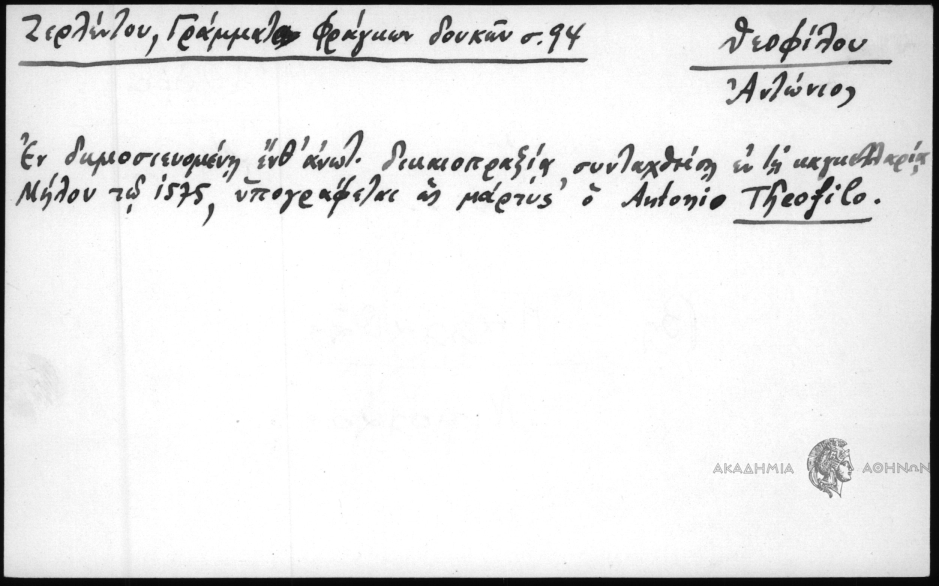 Ζερλέντου, Γράμματα Φράγκων δουκῶν σ. 94
Θεοφίλου
Ἀντώνιος
Ἐν δημοσιευομένῃ ἔνθ' ἀνωτ. δικαιοπραξίᾳ, συνταχθείσῃ ἐν τῇ καγκελλαρίᾳ
Μήλου τῷ 1575, ὑπογράφεται ὡς μάρτυς ὁ Antonio Theofilo.
ΑΚΑΔΗΜΙΑ ΑΘΗΝΩΝ